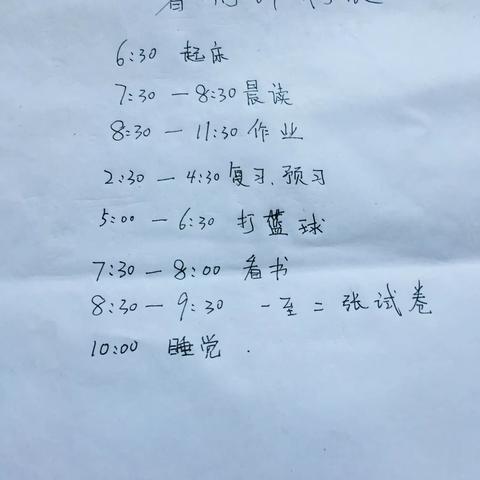 6:30 起床
7:30 — 8:30 晨读
8:30 — 11:30 作业
2:30 — 4:30 复习、预习
5:00 — 6:30 打篮球
7:30 — 8:00 看书
8:30 — 9:30 一至二张试卷
10:00 睡觉.